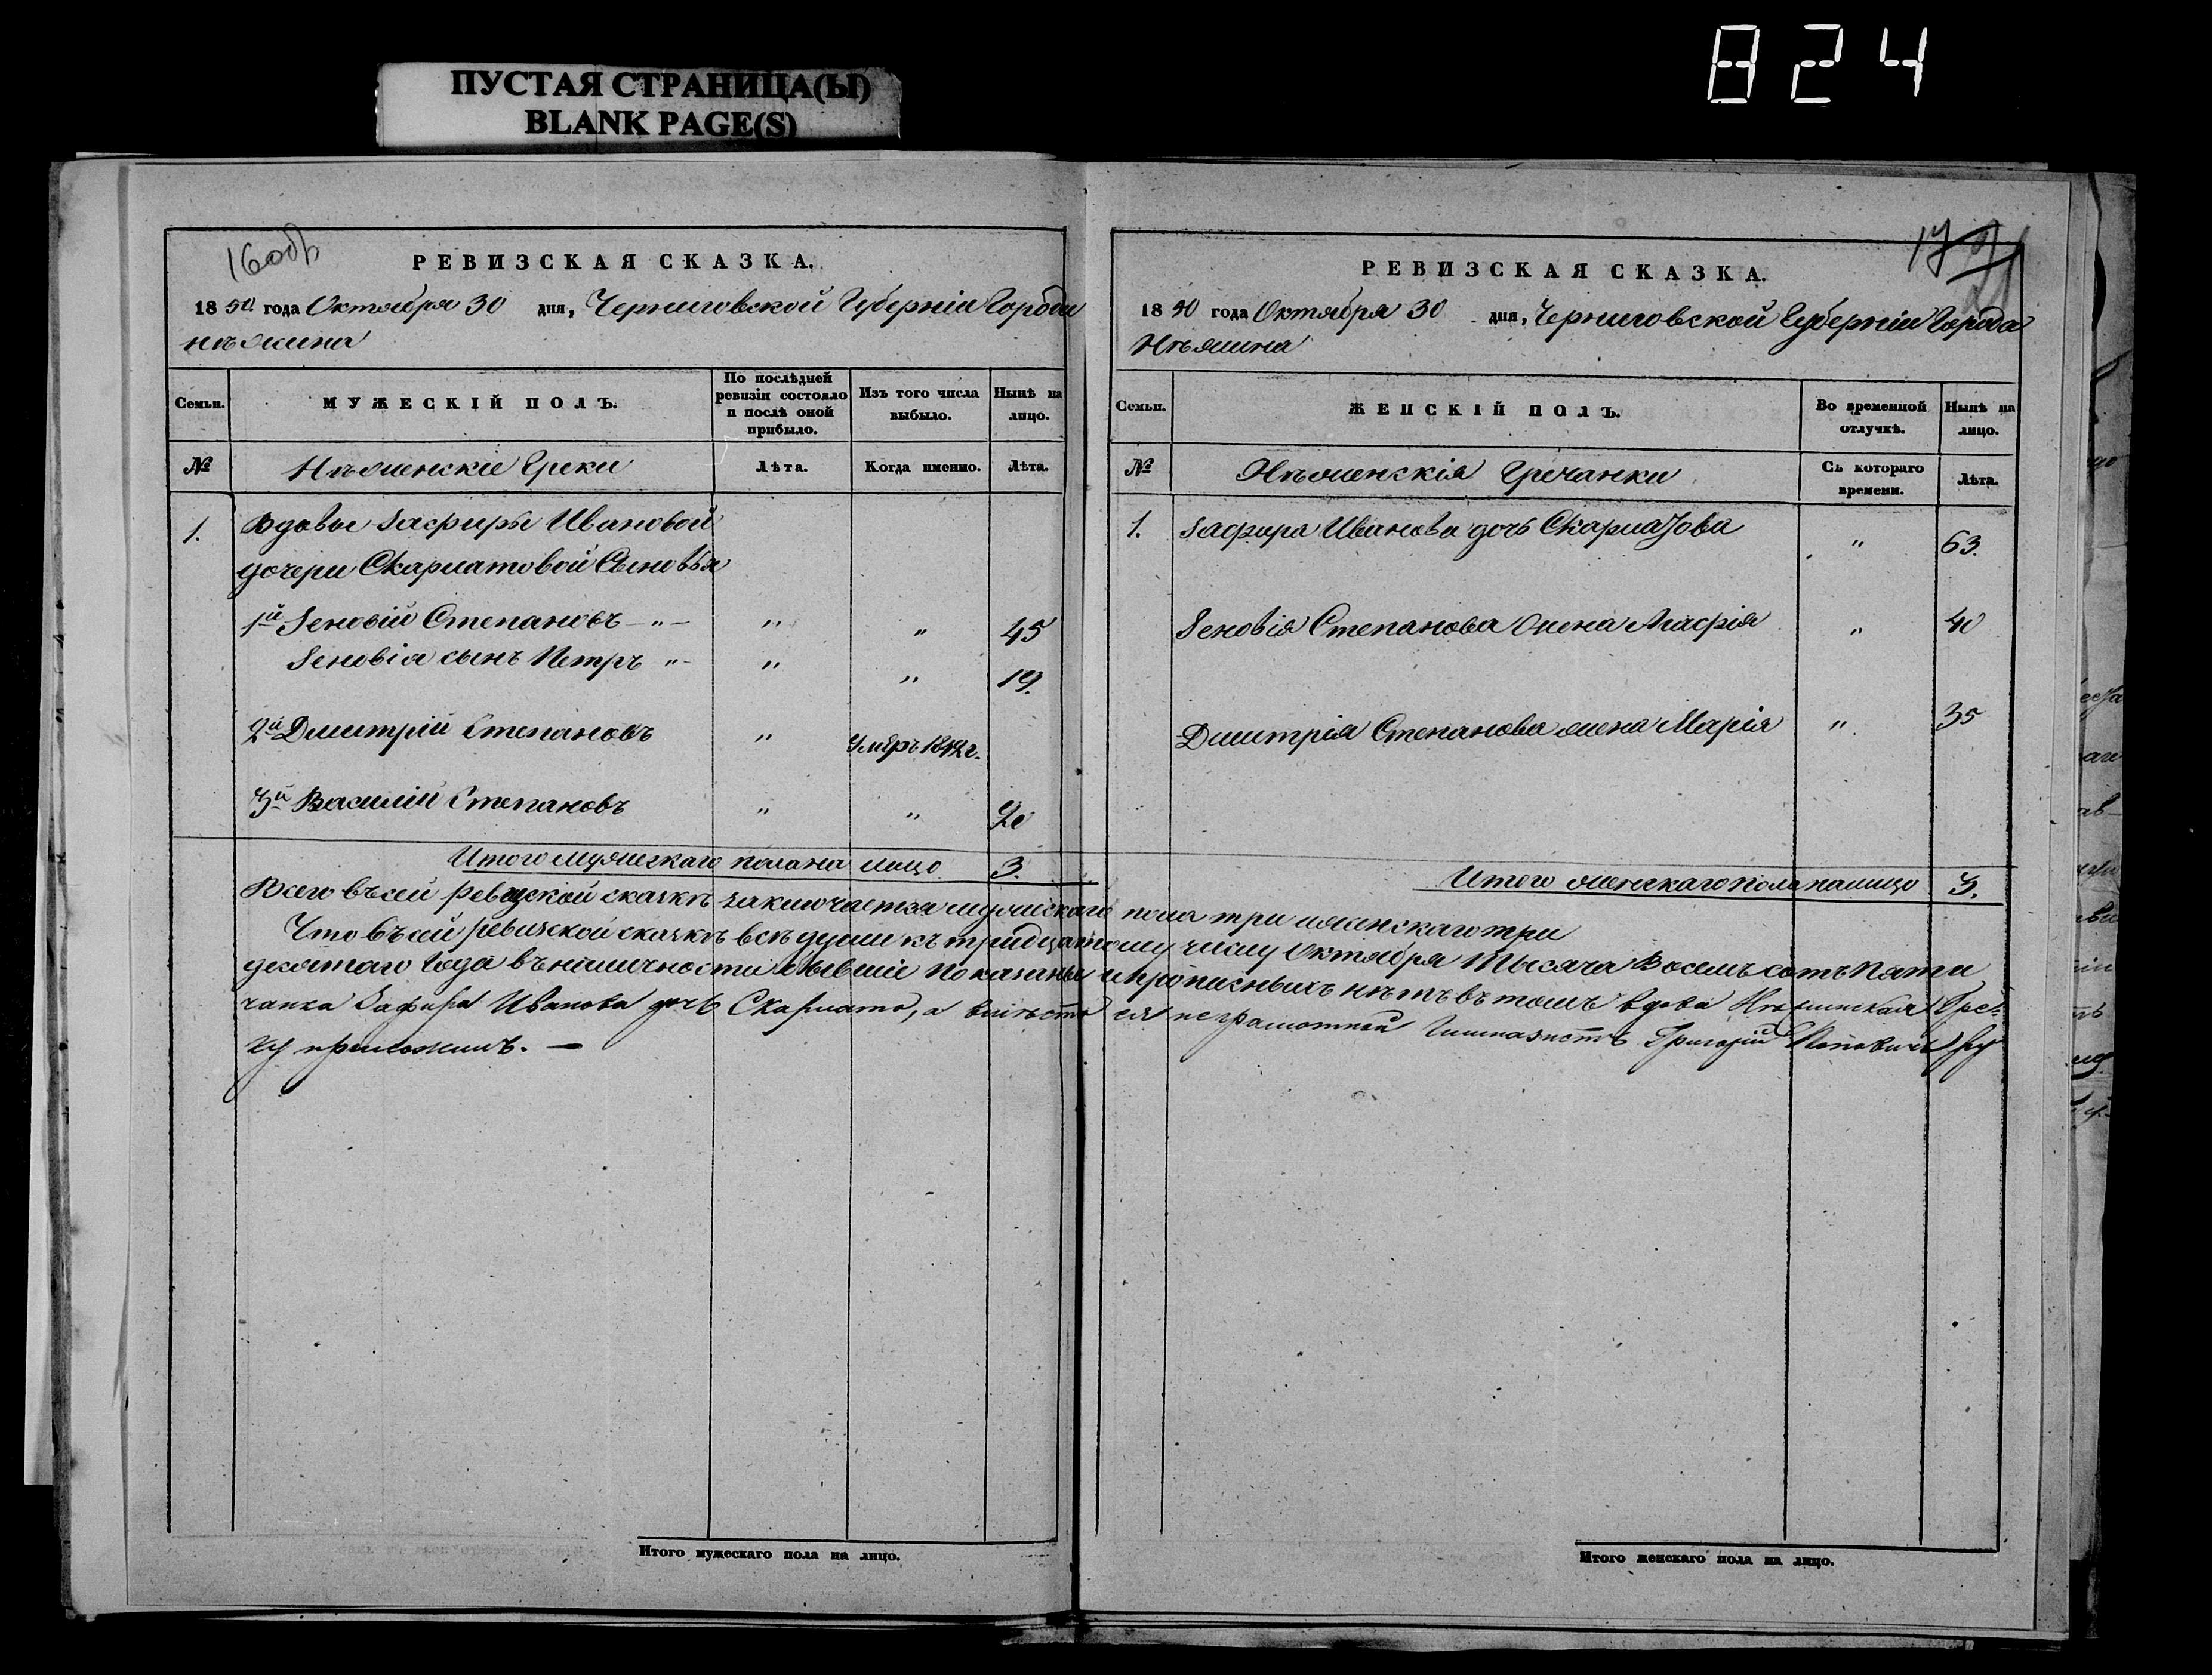 ПУСТАЯ СТРАНИЦА(Ы)
BLANK PAGE(S)
824
16 об
РЕВИЗСКАЯ СКАЗКА.
1850 года Октября 30 дня, Черниговской Губерніи Города
Нѣжина
Семьи.
МУЖЕСКІЙ ПОЛЪ.
По послѣдней ревизіи состояло и послѣ оной прибыло.
Изъ того числа выбыло.
Нынѣ на лицо.
№
Нѣженскіе Греки
Лѣта.
Когда именно.
Лѣта.
1.
Вдовы Зафиры Ивановой
дочери Скарматовой Сыновья
1й Зеновій Степановъ — „ — „ „ 45
Зеновія сынъ Петръ „ - „ „ 19.
2й Дмитрій Степановъ „ Умеръ 1842 г.
3й Василій Степановъ „ „ 20
Итого мужескаго пола на лицо 3.
РЕВИЗСКАЯ СКАЗКА.
1850 года Октября 30 дня, Черниговской Губерніи Города
Нѣжина
Семьи.
ЖЕНСКІЙ ПОЛЪ.
Во временной отлучкѣ.
Нынѣ на лицо.
№
Нѣженскія Гречанки
Съ котораго времени.
Лѣта.
1. Зафира Иванова дочь Скарматова „ 63.
Зеновія Степанова жена Марфія „ 40
Дмитрія Степанова жена Марія „ 35
Итого женскаго пола налицо 3.
Всего въ сей ревизской сказкѣ заключается мужескаго пола три и женскаго три
Что въ сей ревизской сказкѣ всѣ души къ тридцатому числу Октября Тысяча Восемь сотъ Пяти
десятаго Года въ наличности бывшіе показаны и прописныхъ нѣтъ въ томъ вдова Нѣжинская Гре-
чанка Зафира Иванова дочь Скармато, а вмѣсто ея неграмотной Гимназистъ Григорій Поповичъ ру
ку приложилъ. —
Итого мужескаго пола на лицо.
Итого женскаго пола на лицо.